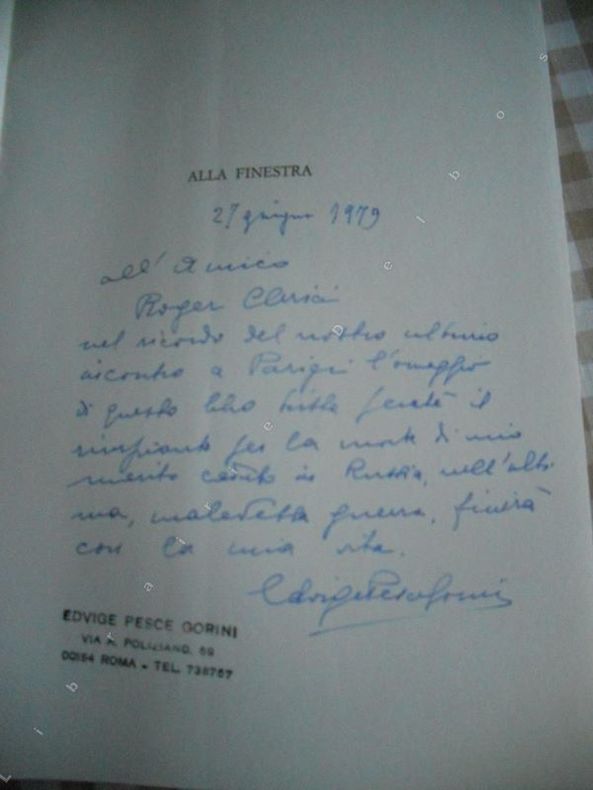 ALLA FINESTRA
27 giugno 1979
all'Amico
Roger Clerici
nel ricordo del nostro ultimo
incontro a Parigi l'omaggio
di questo libro triste perché il
rimpianto per la morte di mio
marito caduto in Russia, nell'ulti-
ma, maledetta guerra, finirà
con la mia vita.
Edvige Pesce Gorini
EDVIGE PESCE GORINI
VIA A. POLIZIANO, 69
00184 ROMA - TEL. 738767